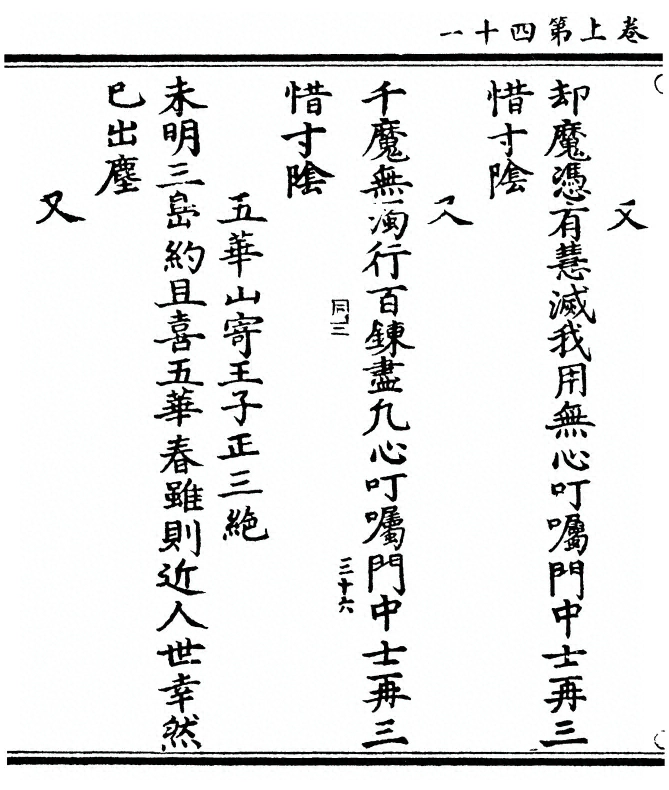 卷上第四十一
又
却魔憑有慧滅我用無心叮囑門中士再三
惜寸陰
又
千魔無濁行百鍊盡九心叮囑門中士再三
同三
三十六
惜寸陰
五華山寄王子正三絶
未明三島約且喜五華春雖則近人世幸然
已出塵
又